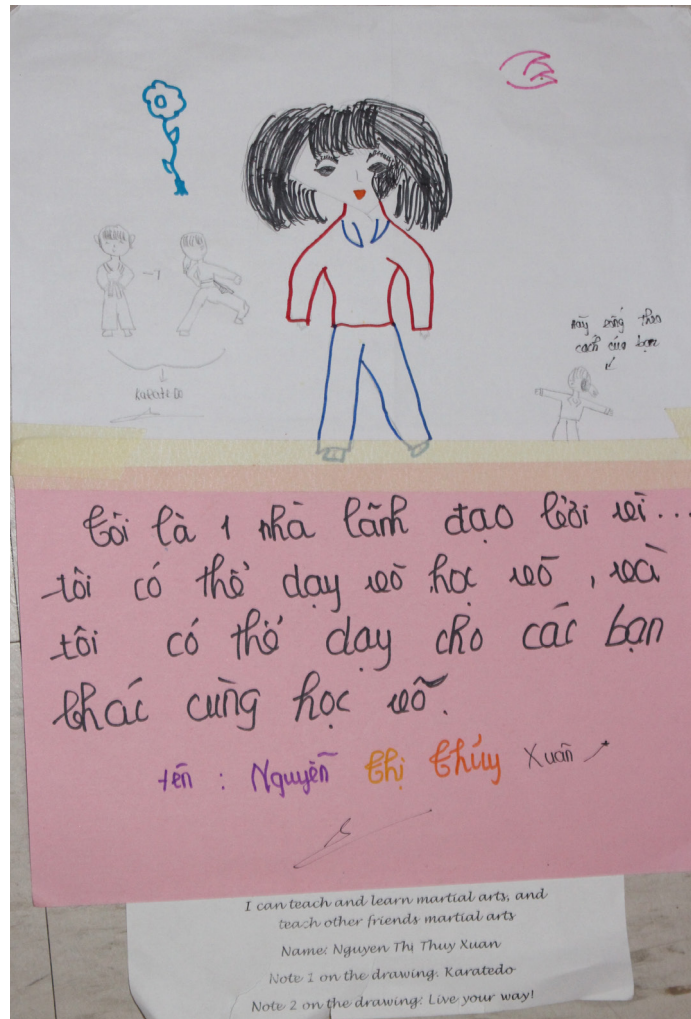 hãy sống theo
cách của bạn
Karatedo
Tôi là 1 nhà lãnh đạo bởi vì...
tôi có thể dạy võ, học võ, và
tôi có thể dạy cho các bạn
khác cùng học võ.
tên : Nguyễn Thị Thúy Xuân
I can teach and learn martial arts, and
teach other friends martial arts
Name: Nguyen Thi Thuy Xuan
Note 1 on the drawing. Karatedo
Note 2 on the drawing: Live your way!